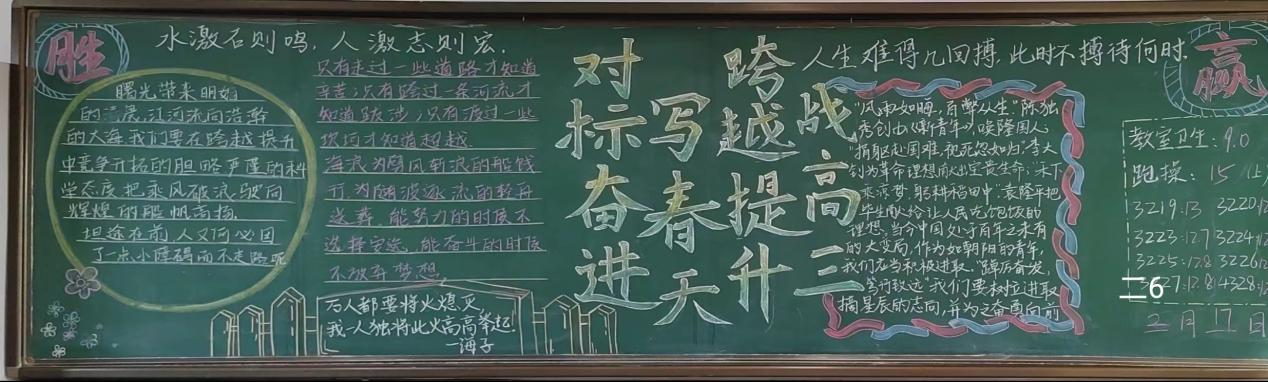 胜
水激石则鸣,人激志则宏.
曙光带来明媚
的流底,江河流向浩瀚
的大海我们要在跨越提升
中竞争开拓的胆略严谨的科
学态度把乘风破浪驶向
辉煌的船帆高扬.
坦途在前人又何必因
了一点小障碍而不走路呢
只有走过一些道路才知道
辛苦;只有跨过一条河流才
知道跋涉,只有渡过一些
坎坷才知道超越.
海浪为劈风斩浪的船饯
行为随波逐流的轻舟
送葬.能努力的时候不
选择安逸.能奋斗的时候
不放弃梦想.
万人都要将火熄灭
我一人独将此火高高举起!
—海子
对标奋进
写春天
跨越提升
战高三
人生难得几回搏,此时不搏待何时.
赢
"风雨如晦,百弊从生"陈独
秀创办《青年》,唤隆国人;
"捐躯赴国难,视死忽如归",李大
钊为革命理想献出宝贵生命;禾下
乘凉梦,躬耕稻田中,袁隆平把
毕生献给让人民吃饱饭的
理想.当今中国处于百年之未有
的大变局,作为如朝阳的青年,
我们尤当积极进取、踔厉奋发,
笃行致远.我们要树立进取
摘星辰的志向,并为之奋勇向前
教室卫生:9.0
跑操:15
3219:13 3220:12
3223:12.7 3224:12
3225:12.8 3226:12
3227:12.8 4328:12
二6
2月17日